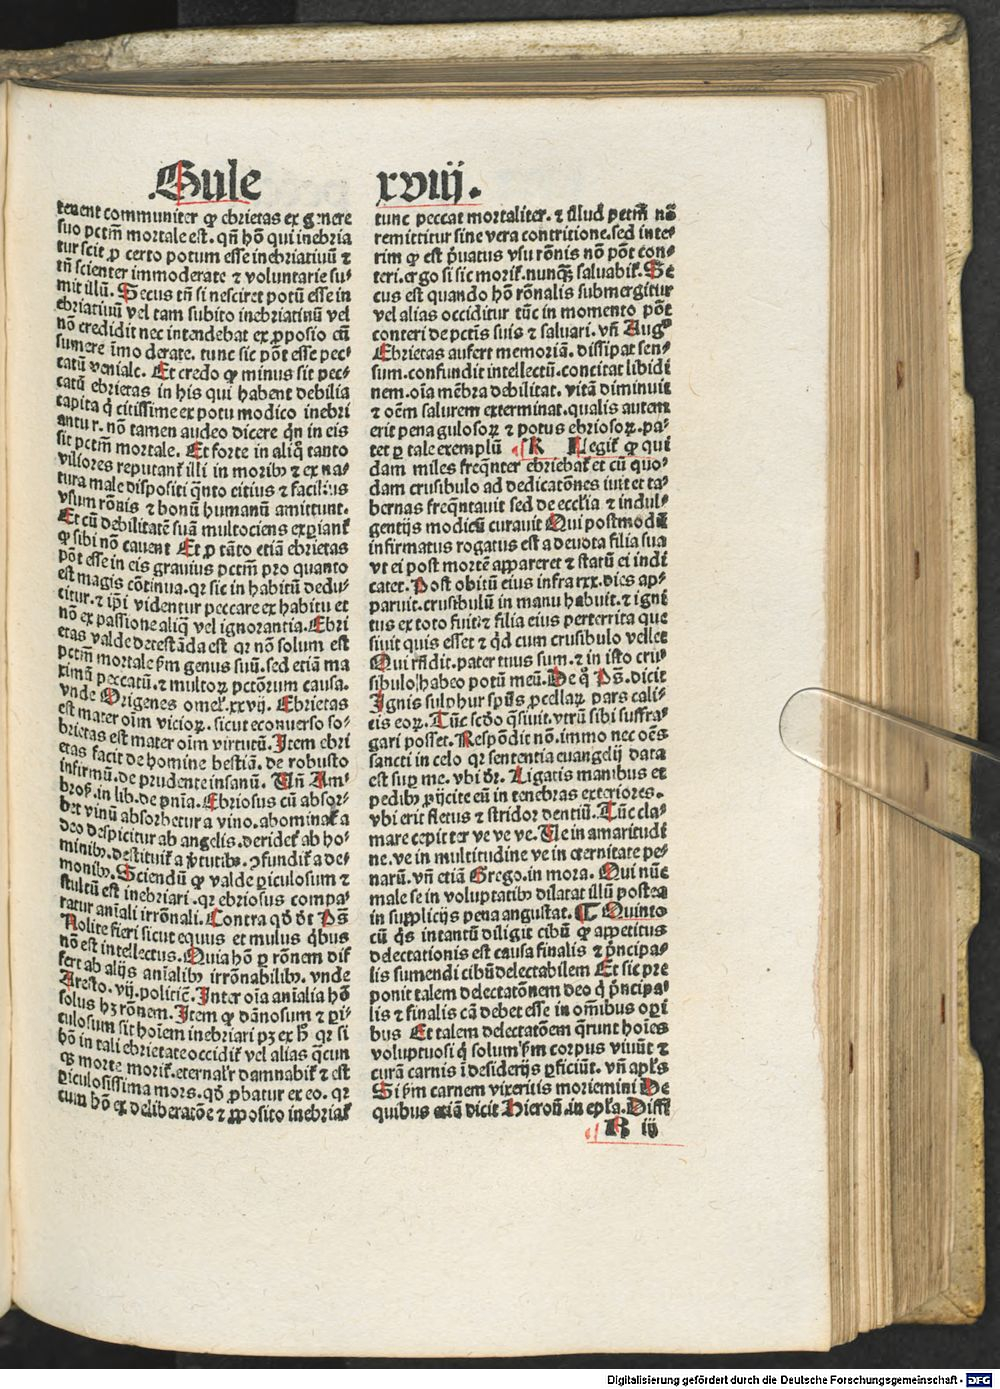 Gule
xviij.
tenent communiter ꝙ ebrietas ex genere
suo pctm̄ mortale est. qn̄ hō qui inebria
tur scit ꝓ certo potum esse inebriatiuū ⁊
tn̄ scienter immoderate ⁊ voluntarie su⸗
mit illū. Secus tn̄ si nesciret potū esse in
ebriatiuū vel tam subito inebriatiuū vel
nō credidit nec intendebat ex ꝓposito cū
sumere īmoderate. tunc sic pōt esse pec⸗
catū veniale. Et credo ꝙ minus sit pec⸗
catū ebrietas in his qui habent debilia
capita q̇ citissime ex potu modico inebri
antur. nō tamen audeo dicere qn̄ in eis
sit pctm̄ mortale. Et forte in aliq̇ tanto
viliores reputant᷑ illi in moribꝫ ⁊ ex na⸗
tura male dispositi q̇nto citius ⁊ facilius
vsum rōnis ⁊ bonū humanū amittunt.
Et cū debilitatē suā multociens exꝑiant᷑
ꝙ sibi nō cauent Et ꝓ tāto etiā ebrietas
pōt esse in eis grauius pctm̄ pro quanto
est magis cōtinua. qꝛ sic in habitū dedu⸗
citur. ⁊ ip̄i videntur peccare ex habitu et
nō ex passione aliq̇ vel ignorantia. Ebri
etas valde detestāda est qꝛ nō solum est
pctm̄ mortale ẜm genus suū. sed etiā ma
ximū peccatū. ⁊ multoꝝ pctōrum causa.
vnde Origenes omel᷑. xxvij. Ebrietas
est mater oīm vicioꝝ. sicut econuerso so⸗
brietas est mater oīm virtutū. Item ebri
etas facit de homine bestiā. de robusto
infirmū. de prudente insanū. Vn̄ Am⸗
bros᷑. in lib. de pn̄ia. Ebriosus cū absor⸗
bet vinū absorbetur a vino. abominat᷑ a
deo despicitur ab angelis. deridet᷑ ab ho⸗
minibꝫ. destituit᷑ a v̓tutibꝫ. ↄfundit᷑ a de⸗
monibꝫ. Sciendū ꝙ valde ꝑiculosum ⁊
stultū est inebriari. qꝛ ebriosus compa⸗
ratur aīali irrōnali. Contra qd̄ dt̄ Ps̄
Nolite fieri sicut equus et mulus q̇bus
nō est intellectus. Quia hō ꝑ rōnem dif
fert ab alijs aīalibꝫ irrōnabilibꝫ. vnde
Aresto. vij. politic̄. Inter oīa aīalia hō
solus hꝫ rōnem. Item ꝙ dānosum ⁊ ꝑi⸗
culosum sit hoīem inebriari pꝫ ex h̄ qꝛ si
hō in tali ebrietate occidit᷑ vel alias q̇cun
qꝫ morte morit᷑. eternalr̄ damnabit᷑ ⁊ est
ꝑiculosissima mors. qd̄ ꝓbatur ex eo. qꝛ
cum hō ex deliberatōe ⁊ ꝓposito inebriat᷑
tunc peccat mortaliter. ⁊ illud pctm̄ nō
remittitur sine vera contritione. sed inte⸗
rim ꝙ est p̓uatus vsu rōnis nō pōt con⸗
teri. ergo si sic morit᷑. nunqꝫ saluabit᷑. Se
cus est quando hō rōnalis submergitur
vel alias occiditur tūc in momento pōt
conteri de pctīs suis ⁊ saluari. vn̄ Augꝰ
Ebrietas aufert memoriā. dissipat sen⸗
sum. confundit intellectū. concitat libidi
nem. oīa mēbra debilitat. vitā diminuit
⁊ oēm salutem exterminat. qualis autem
erit pena gulosoꝝ ⁊ potus ebriosoꝝ. pa⸗
tet ꝑ tale exemplū K Legit᷑ ꝙ qui
dam miles freq̇nter ebriebat᷑ et cū quo⸗
dam crusibulo ad dedicatōnes iuit et ta⸗
bernas freq̇ntauit sed de ecclīa ⁊ indul⸗
gentijs modicū curauit Qui postmodū
infirmatus rogatus est a deuota filia sua
vt ei post mortē appareret ⁊ statū ei indi
caret. Post obitū eius infra xxx. dies ap⸗
paruit. crusibulū in manu habuit. ⁊ igni
tus ex toto fuit ⁊ filia eius perterrita que
siuit quis esset ⁊ qd̄ cum crusibulo vellet
Qui rn̄dit. pater tuus sum. ⁊ in isto cru⸗
sibulo habeo potū meū. De q̊ Ps̄. dicit
Ignis sulphur spūs ꝓcellaꝝ pars cali⸗
cis eoꝝ. Tūc scd̄o q̄siuit. vtrū sibi suffra⸗
gari posset. Respōdit nō. immo nec oēs
sancti in celo qꝛ sententia euangelij data
est suꝑ me. vbi dr̄. Ligatis manibus et
pedibꝫ ꝓijcite eū in tenebras exteriores.
vbi erit fletus ⁊ stridor dentiū. Tūc cla⸗
mare cepit ter ve ve ve. Ve in amaritudi
ne. ve in multitudine ve in eternitate pe⸗
narū. vn̄ etiā Grego. in mora. Qui nūc
male se in voluptatibꝫ dilatat illū postea
in supplicijs pena angustat. ¶ Quinto
cū q̇s intantū diligit cibū ꝙ appetitus
delectationis est causa finalis ⁊ p̓ncipa⸗
lis sumendi cibū delectabilem Et sic pre
ponit talem delectatōnem deo q̇ p̓ncipa⸗
lis ⁊ finalis cā debet esse in omībus oꝑi
bus Et talem delectatōem q̄runt hoīes
voluptuosi q̇ solum ẜm corpus viuūt ⁊
curā carnis ī desiderijs ꝑficiūt. vn̄ apl̄s
Si ẜm carnem vixeritis moriemini De
quibus etiā dicit Hieroñ. in epl̄a. Diffi
K iij
Digitalisierung gefördert durch die Deutsche Forschungsgemeinschaft - DFG